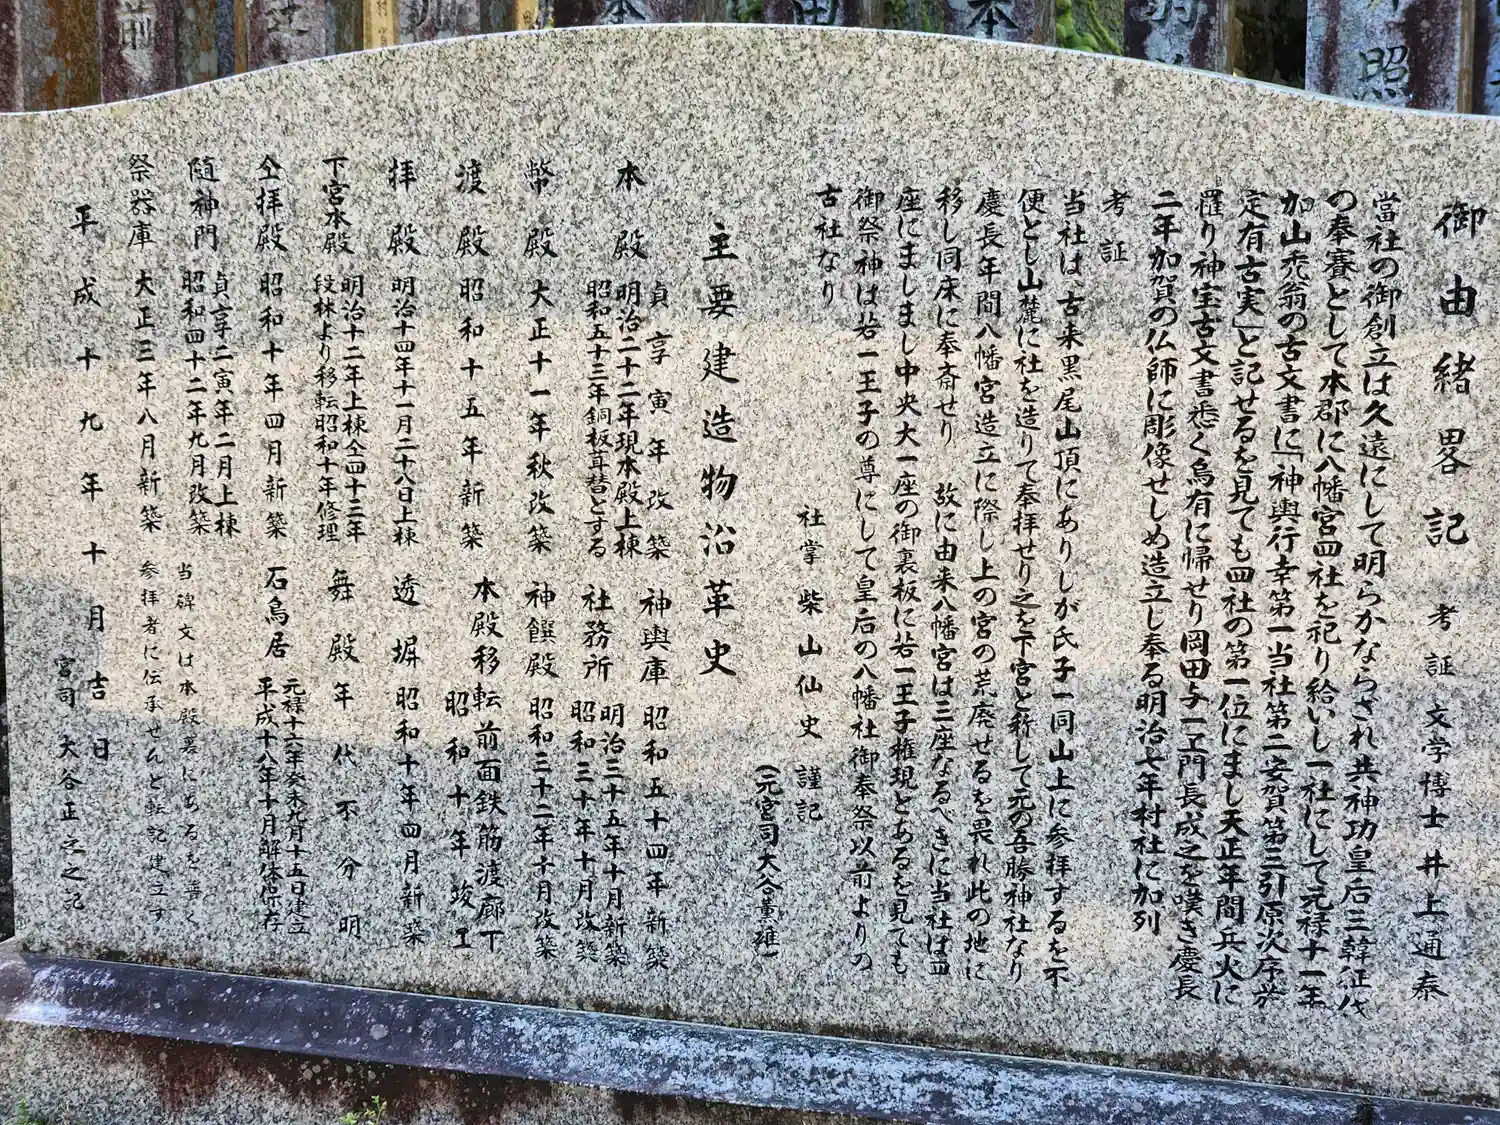 御由緒畧記 考証 文学博士 井上通泰
當社の御創立は久遠にして明らかならざれ共神功皇后三韓征伐
の奉賽として本郡に八幡宮四社を祀り給いし一社にして元禄十一年
加山禿翁の古文書に「神輿行幸第一当社第二安賀第三引原次序并
定有古実」と記せるを見ても四社の第一位にまし天正年間兵火に
罹り神宝古文書悉く烏有に帰せり岡田与一ヱ門長成之を嘆き慶長
二年加賀の仏師に彫像せしめ造立し奉る明治七年村社に加列
考証
当社は、古来黒尾山頂にありしが氏子一同山上に参拝するを不
便とし山麓に社を造りて奉拝せり之を下宮と称して元の吾勝神社なり
慶長年間八幡宮造立に際し上の宮の荒廃せるを畏れ此の地に
移し同床に奉斎せり 故に由来八幡宮は三座なるべきに当社は四
座にましまし中央大一座の御裏板に若一王子権現とあるを見ても
御祭神は若一王子の尊にして皇后の八幡社御奉祭以前よりの
古社なり
社掌 柴山仙史 謹記
(元宮司大谷薫雄)
主要建造物沿革史
本殿 貞享寅年改築
明治二十二年現本殿上棟
昭和五十三年銅板葺替とする
神輿庫 昭和五十四年新築
社務所 明治三十五年十月新築
昭和三十年十月改築
幣殿 大正十一年秋改築
神饌殿 昭和三十二年十月改築
渡殿 昭和十五年新築
本殿移転前面鉄筋渡廊下
昭和十年竣工
拝殿 明治十四年十一月二十八日上棟
透塀 昭和十年四月新築
下宮本殿 明治十二年上棟仝四十三年
段林より移転昭和十年修理
舞殿 年代不分明
仝拝殿 昭和十年四月新築
石鳥居 元禄十六年癸未九月十五日建立
平成十八年十月解体保存
随神門 貞享二寅年二月上棟
昭和四十二年九月改築
祭器庫 大正三年八月新築
当碑文は本殿裏にあるを普く
参拝者に伝承せんと転記建立す
平成十九年十月吉日
宮司 大谷正之之記
前
本
田
本
照